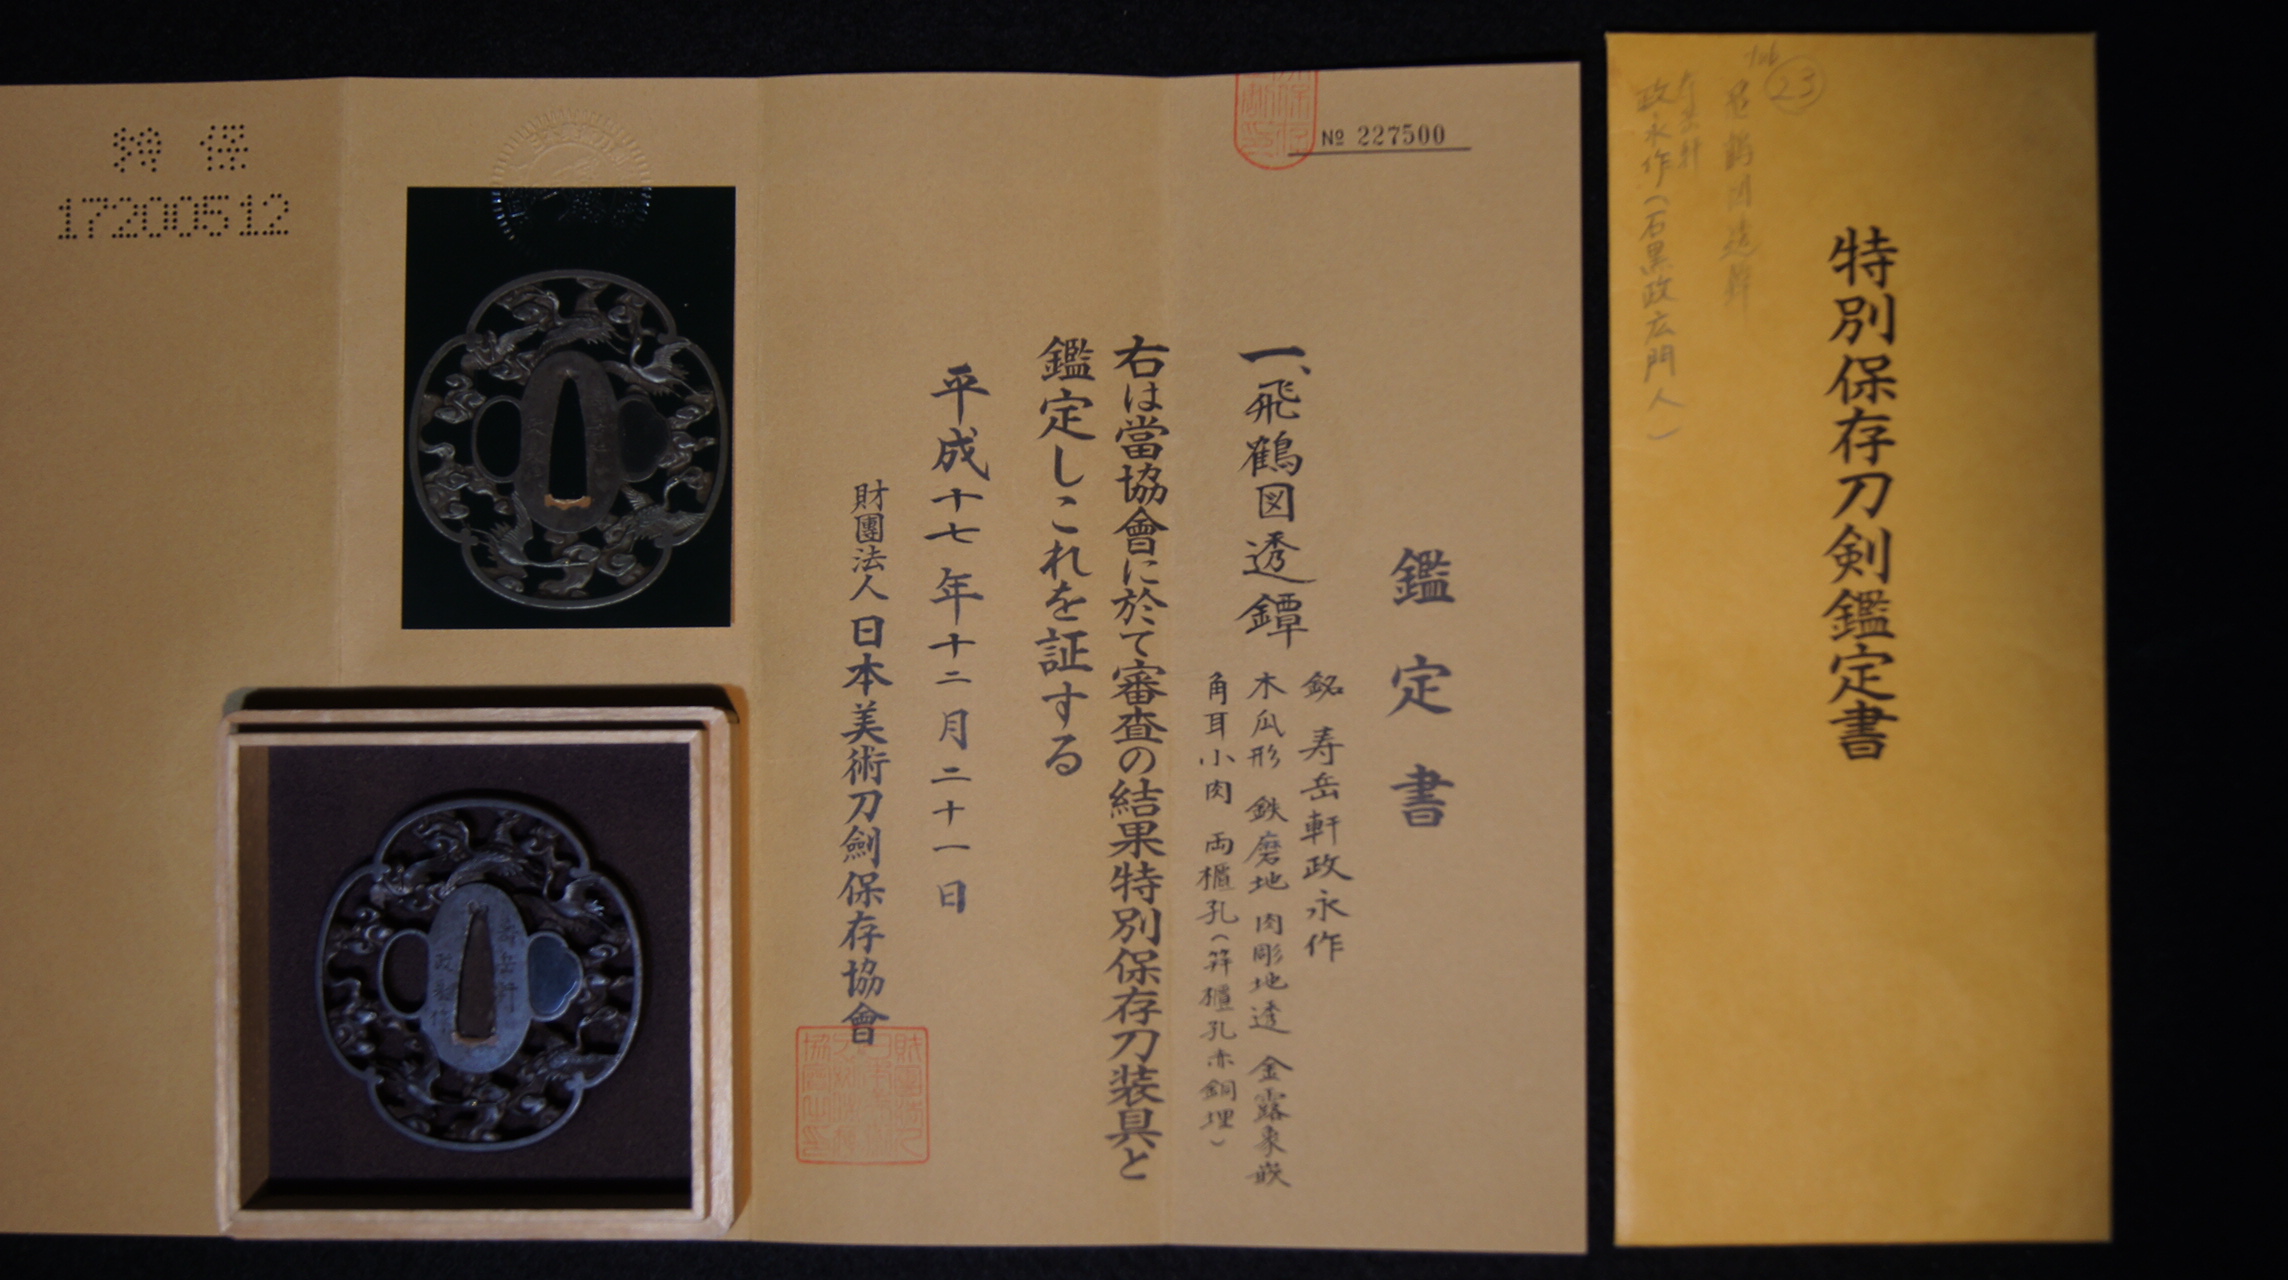 特別保存刀剣鑑定書
23
政永作(石黒政広門人)
№ 227500
鑑定書
一、飛鶴図透鐔
銘 寿岳軒政永作
木瓜形 鉄磨地 肉彫地透 金露象嵌
角耳小肉 両櫃孔(笄櫃孔赤銅埋)
右は當協會に於て審査の結果特別保存刀装具と
鑑定しこれを証する
平成十七年十二月二十一日
財團法人日本美術刀劍保存協會
特保
17200512